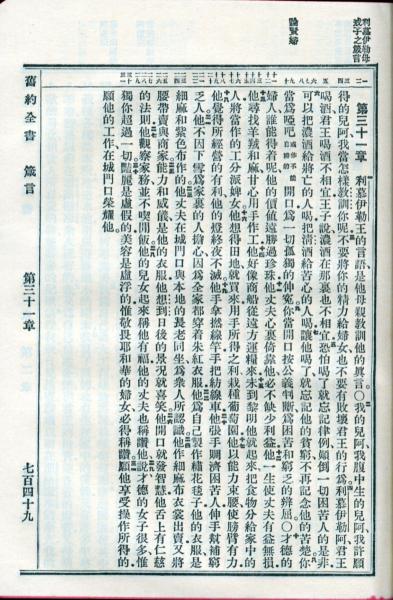 利慕伊勒母
戒子之箴言
論賢婦
第三十一章 利慕伊勒王的言語是他母親教訓他的眞言○我的兒阿我腹中生的兒阿我許願
得的兒阿我當怎樣教訓你呢不要將你的精力給婦女也不要有敗壞君王的行爲利慕伊勒阿君王
喝酒君王喝酒不相宜王子說濃酒在那裏也不相宜恐怕喝了就忘記律例顛倒一切困苦人的是非
可以把濃酒給將亡的人喝把清酒給苦心的人喝讓他喝了就忘記他的貧窮不再記念他的苦楚你
當爲啞吧開口爲一切孤獨的伸寃你當開口按公義判斷爲困苦和窮乏的辨屈○才德的
婦人誰能得着呢他的價值遠勝過珍珠他丈夫心裏倚靠他必不缺少利益他一生使丈夫有益無損
他尋找羊羢和麻甘心用手作工他好像商船從遠方運糧來未到黎明他就起來把食物分給家中的
人將當作的工分派婢女他想得田地就買來用手所得之利栽種葡萄園他以能力束腰使膀臂有力
他覺得所經營的有利他的燈終夜不滅他手拿撚線竿手把紡線車他張手賙濟困苦人伸手幫補窮
乏人他不因下雪爲家裏的人擔心因爲全家都穿着朱紅衣服他爲自己製作繡花毯子他的衣服是
細麻和紫色布作的他丈夫在城門口與本地的長老同坐爲衆人所認識他作細麻布衣裳出賣又將
腰帶賣與商家能力和威儀是他的衣服他想到日後的景況就喜笑他開口就發智慧他舌上有仁慈
的法則他觀察家務並不喫閒飯他的兒女起來稱他有福他的丈夫也稱讚他說才德的女子很多惟
獨你超過一切艷麗是虛假的美容是虛浮的惟敬畏耶和華的婦女必得稱讚願他享受操作所得的
願他的工作在城門口榮耀他
舊約全書 箴言 第三十一章 七百四十九